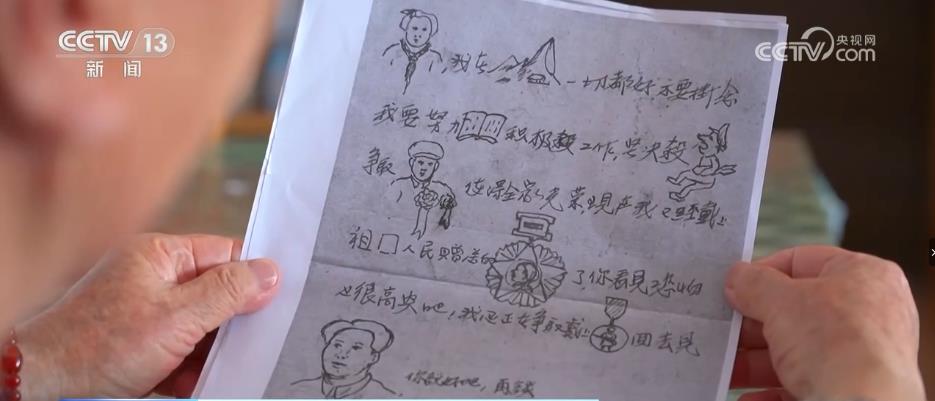 CCTV 13
新闻
CCTV 央视网
.com
,我在 一切都好不要掛念
我要努力 积极 工作,坚决殺
争取 全家光荣,現在我已经戴上
祖 人民贈送的 了你看見了恐怕
也很高央吧,我还正在争取戴上 回去見
你説好吧,再談